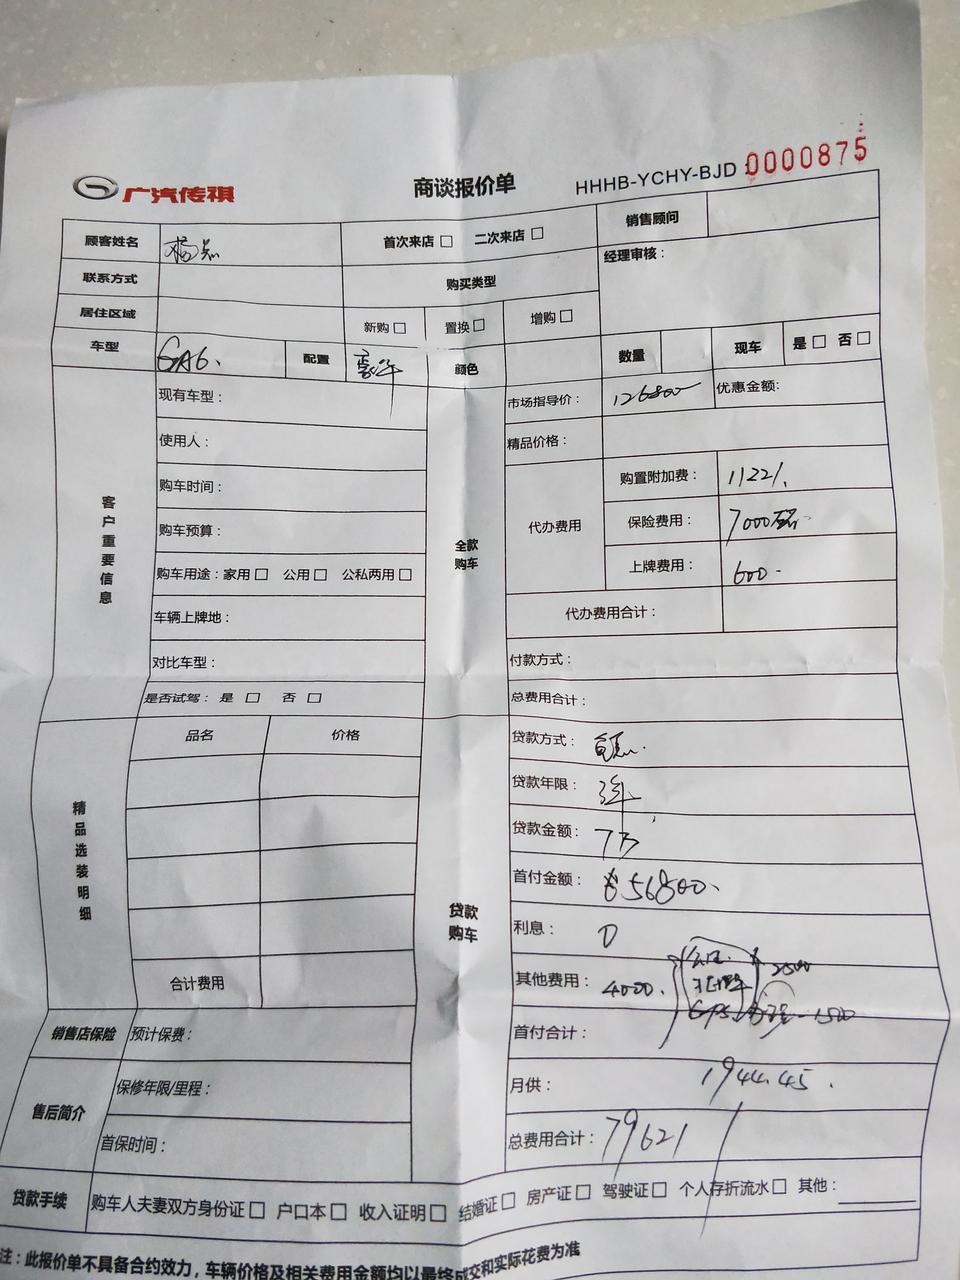 广汽传祺 商谈报价单 HHHB-YCHY-BJD 0000875
顾客姓名 首次来店 □ 二次来店 □ 销售顾问
联系方式 购买类型 经理审核：
居住区域 新购 □ 置换 □ 增购 □
车型 GA6. 配置 豪华 颜色 数量 现车 是 □ 否 □
客户重要信息
现有车型：
使用人：
购车时间：
购车预算：
购车用途：家用 □ 公用 □ 公私两用 □
车辆上牌地：
对比车型：
是否试驾：是 □ 否 □
全款购车
市场指导价： 126800 优惠金额：
精品价格：
代办费用
购置附加费： 11221.
保险费用： 7000
上牌费用： 600.
代办费用合计：
付款方式：
总费用合计：
精品选装明细
品名 价格
合计费用
贷款购车
贷款方式：
贷款年限： 3年
贷款金额： 7万
首付金额： ¥56800.
利息： 0
其他费用： 4000. 2500
GPS 1500
首付合计：
月供： 1944.45.
总费用合计： 79621
销售店保险 预计保费：
售后简介
保修年限/里程：
首保时间：
贷款手续 购车人夫妻双方身份证 □ 户口本 □ 收入证明 □ 结婚证 □ 房产证 □ 驾驶证 □ 个人存折流水 □ 其他：
注：此报价单不具备合约效力，车辆价格及相关费用金额均以最终成交和实际花费为准